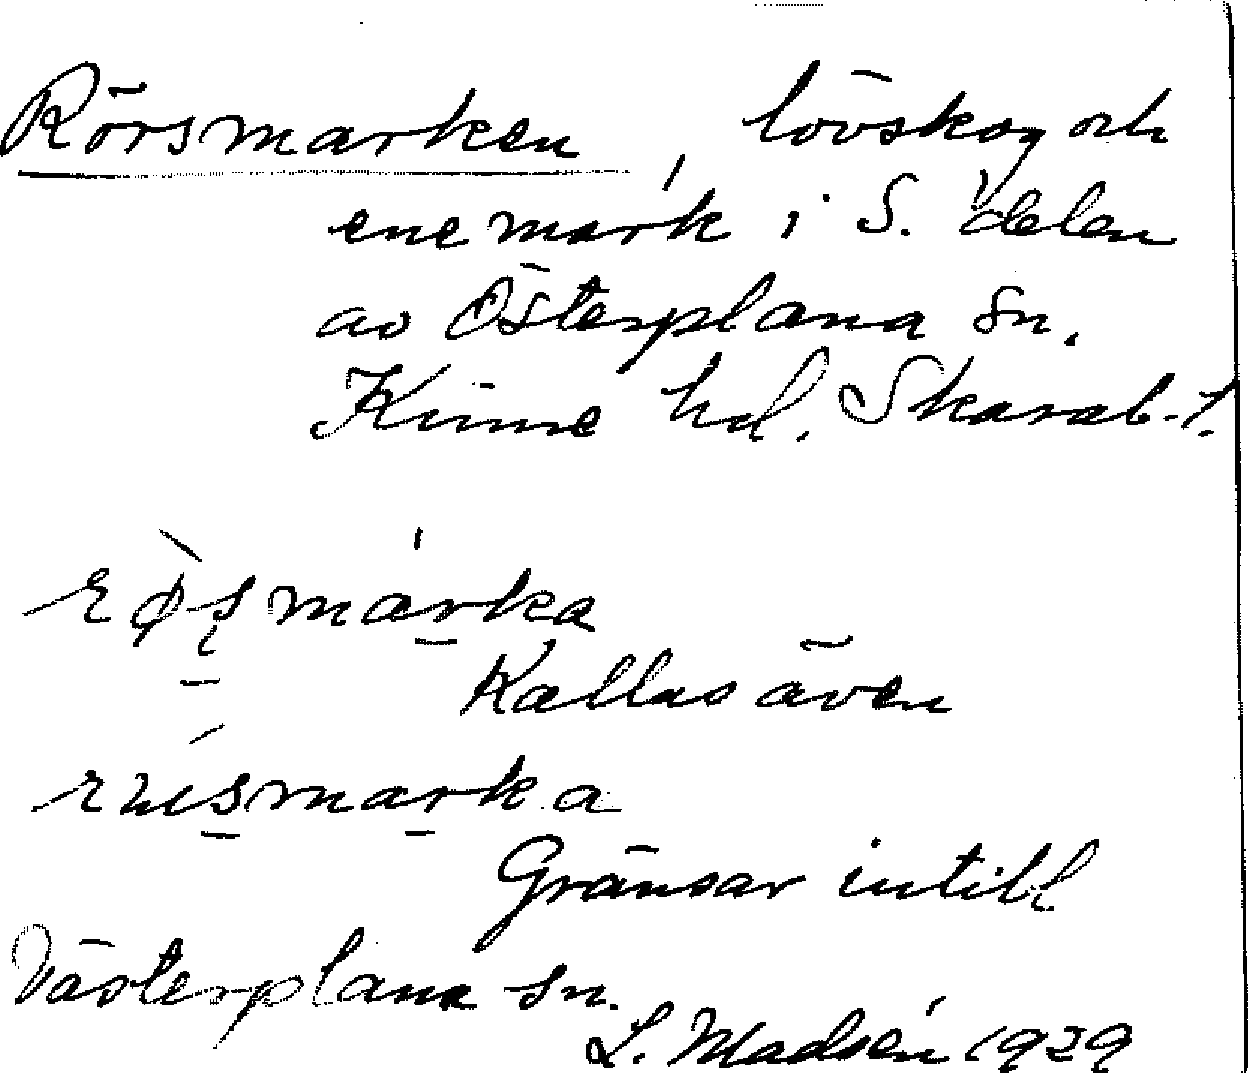 Rörsmarken, lövskog och
enemark i S. delen
av Österplana sn.
Kinne hd. Skarab. l.
rø̀ʂmárka
Kallas även
rúsmarka
Gränsar intill
Västerplana sn.
L. Madsén 1929